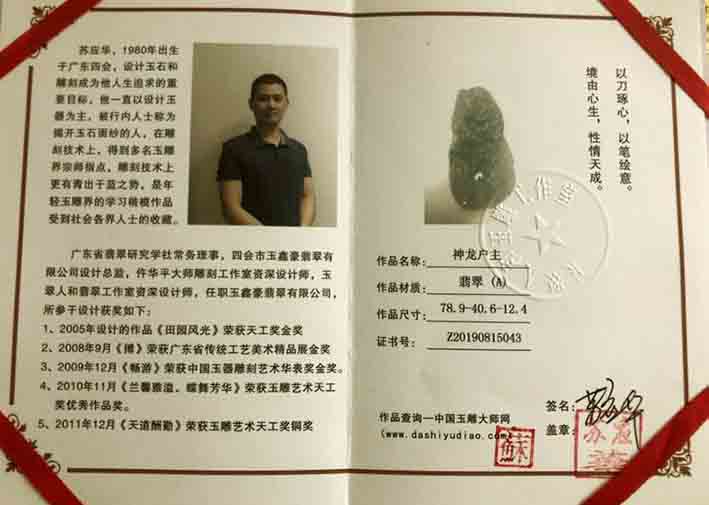 苏应华，1980年出生
于广东四会，设计玉石和
雕刻成为他人生追求的重
要目标，他一直以设计玉
器为主，被行内人士称为
揭开玉石面纱的人，在雕
刻技术上，得到多名玉雕
界宗师指点，雕刻技术上
更有青出于蓝之势，是年
轻玉雕界的学习楷模作品
受到社会各界人士的收藏。
广东省翡翠研究学社常务理事，四会市玉鑫豪翡翠有
限公司设计总监，仵华平大师雕刻工作室资深设计师，玉
翠人和翡翠工作室资深设计师，任职玉鑫豪翡翠有限公司，
所参于设计获奖如下：
1、2005年设计的作品《田园风光》荣获天工奖金奖
2、2008年9月《搏》荣获广东省传统工艺美术精品展金奖
3、2009年12月《畅游》荣获中国玉器雕刻艺术华表奖金奖。
4、2010年11月《兰馨雅溢、蝶舞芳华》荣获玉雕艺术天工
奖优秀作品奖。
5、2011年12月《天道酬勤》荣获玉雕艺术天工奖铜奖
以刀琢心，以笔绘意。
境由心生，性情天成。
作品名称：神龙户主
作品材质：翡翠（A）
作品尺寸：78.9-40.6-12.4
证书号：Z20190815043
签名：
盖章：
作品查询—中国玉雕大师网
(www.dashiyudiao.com)